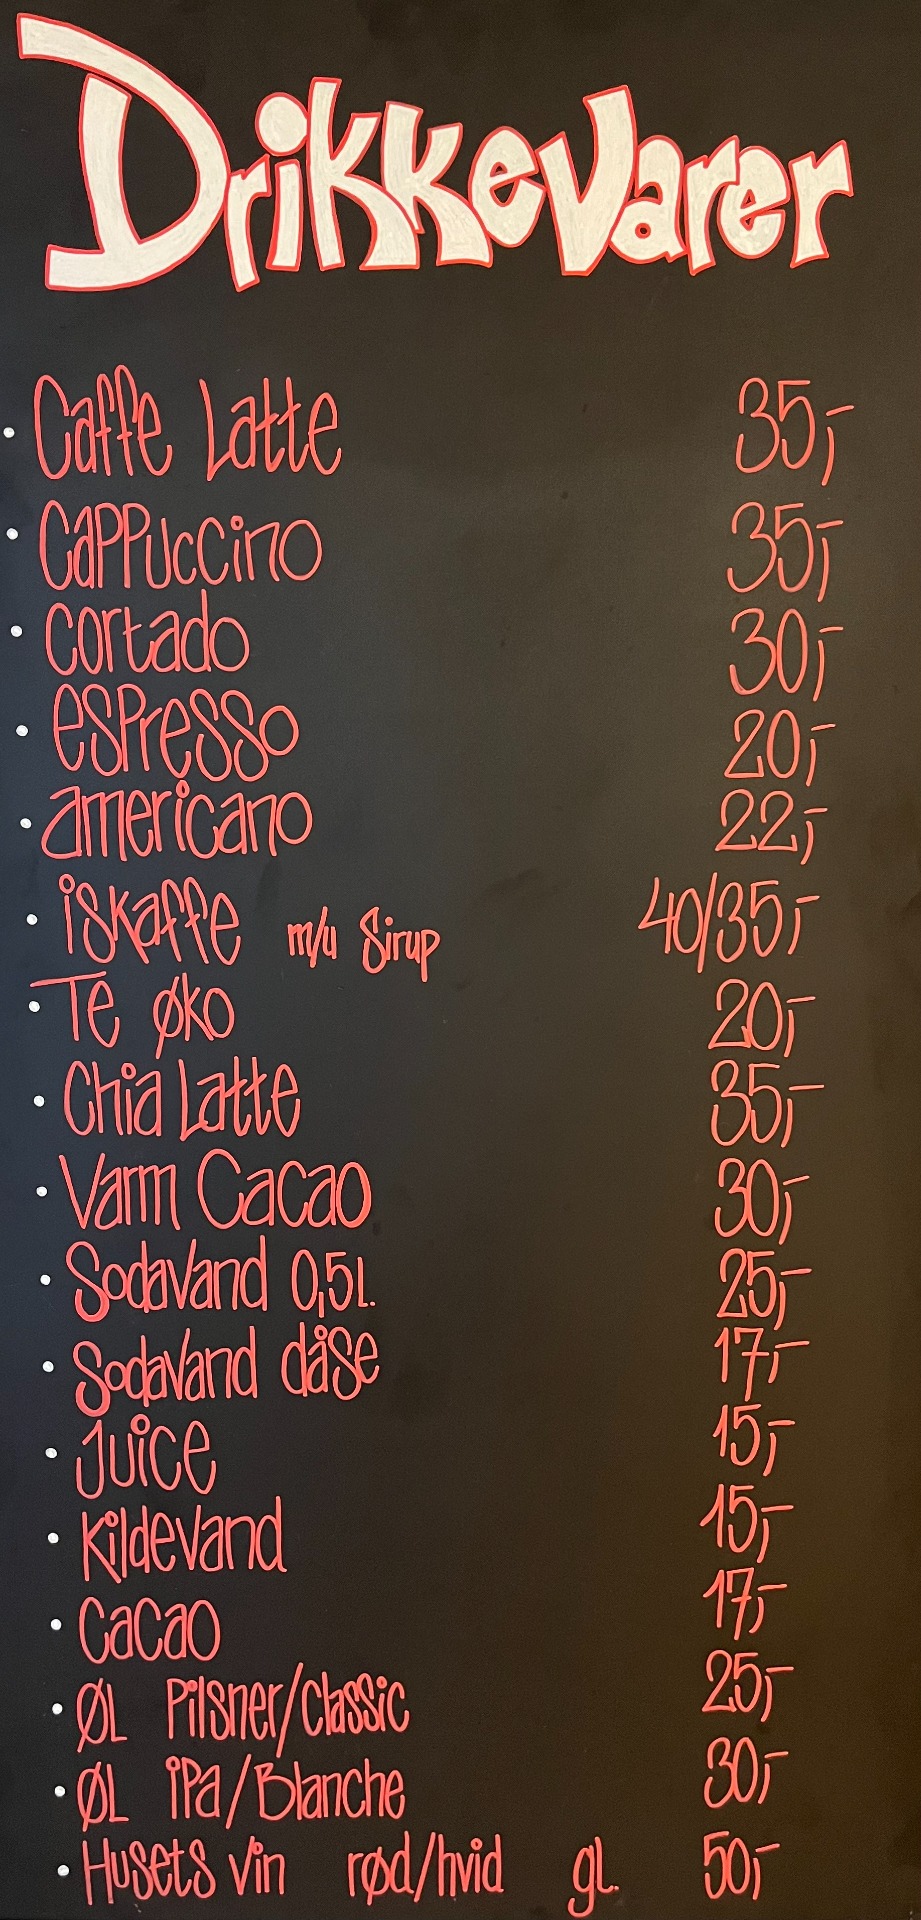 DrikkeVarer
Caffe Latte 35,-
CaPPuccino 35,-
Cortado 30,-
esPresso 20,-
americano 22,-
iskaffe m/u Sirup 40/35,-
Te øko 20,-
Chia Latte 35,-
Varm Cacao 30,-
Sodavand 0,5L. 25,-
Sodavand dåse 17,-
Juice 15,-
Kildevand 15,-
Cacao 17,-
ØL Pilsner/Classic 25,-
ØL iPa/Blanche 30,-
Husets vin rød/hvid gl. 50,-